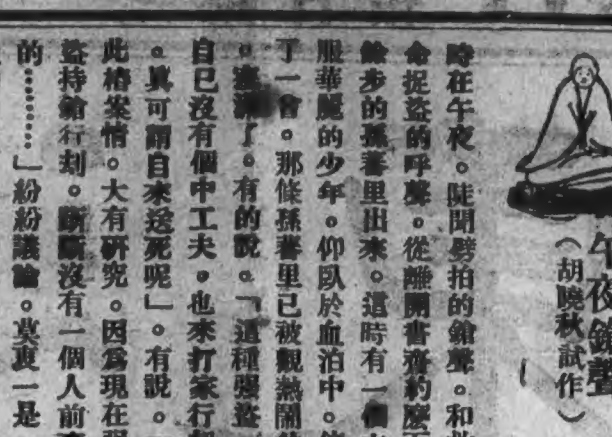 午夜鎗聲
（胡曉秋試作）
時在午夜。陡聞劈拍的鎗聲。和
命捉盜的呼聲。從離開書齋約麼
餘步的孫善里出來。這時有一個
服華麗的少年。仰臥於血泊中。
了一會。那條孫善里已被觀熱鬧
。塞滿了。有的說。「這種强盜
自已沒有個中工夫。也來打家行
。真可謂自來送死呢」。有說。
此樁案情。大有研究。因爲現在
盜持鎗行刦。斷斷沒有一個人前
的………」紛紛議論。莫衷一是